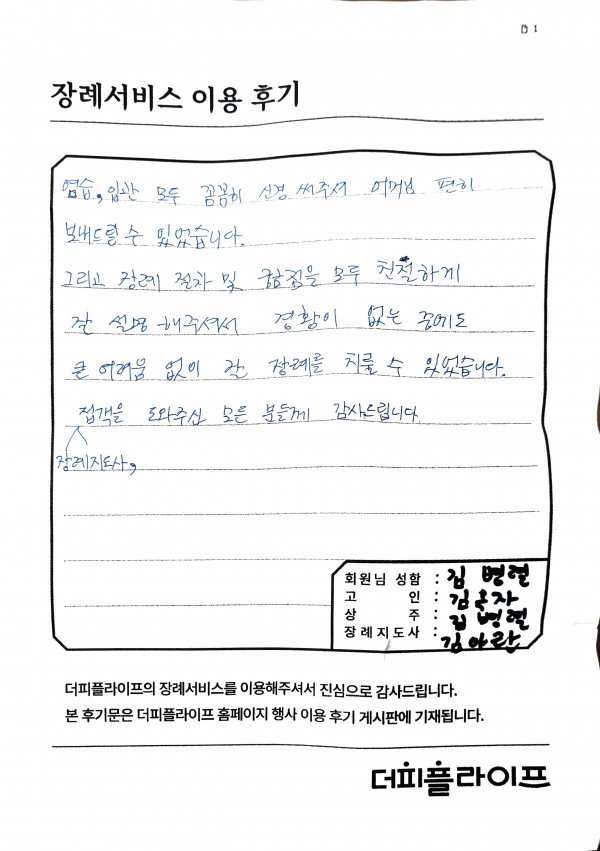 1
장례서비스 이용 후기
염습, 입관 모두 꼼꼼히 신경 써주셔서 어머님 편히
보내드릴 수 있었습니다.
그리고 장례 절차 및 궁금점을 모두 친절하게
잘 설명해주셔서 경황이 없는 중에도
큰 어려움 없이 잘 장례를 치룰 수 있었습니다.
접객을 도와주신 모든 분들께 감사드립니다.
장례지도사,
회원님 성함 : 김병렬
고 인 : 김옥자
상 주 : 김병렬
장례지도사 : 김아란
더피플라이프의 장례서비스를 이용해주셔서 진심으로 감사드립니다.
본 후기문은 더피플라이프 홈페이지 행사 이용 후기 게시판에 기재됩니다.
더피플라이프